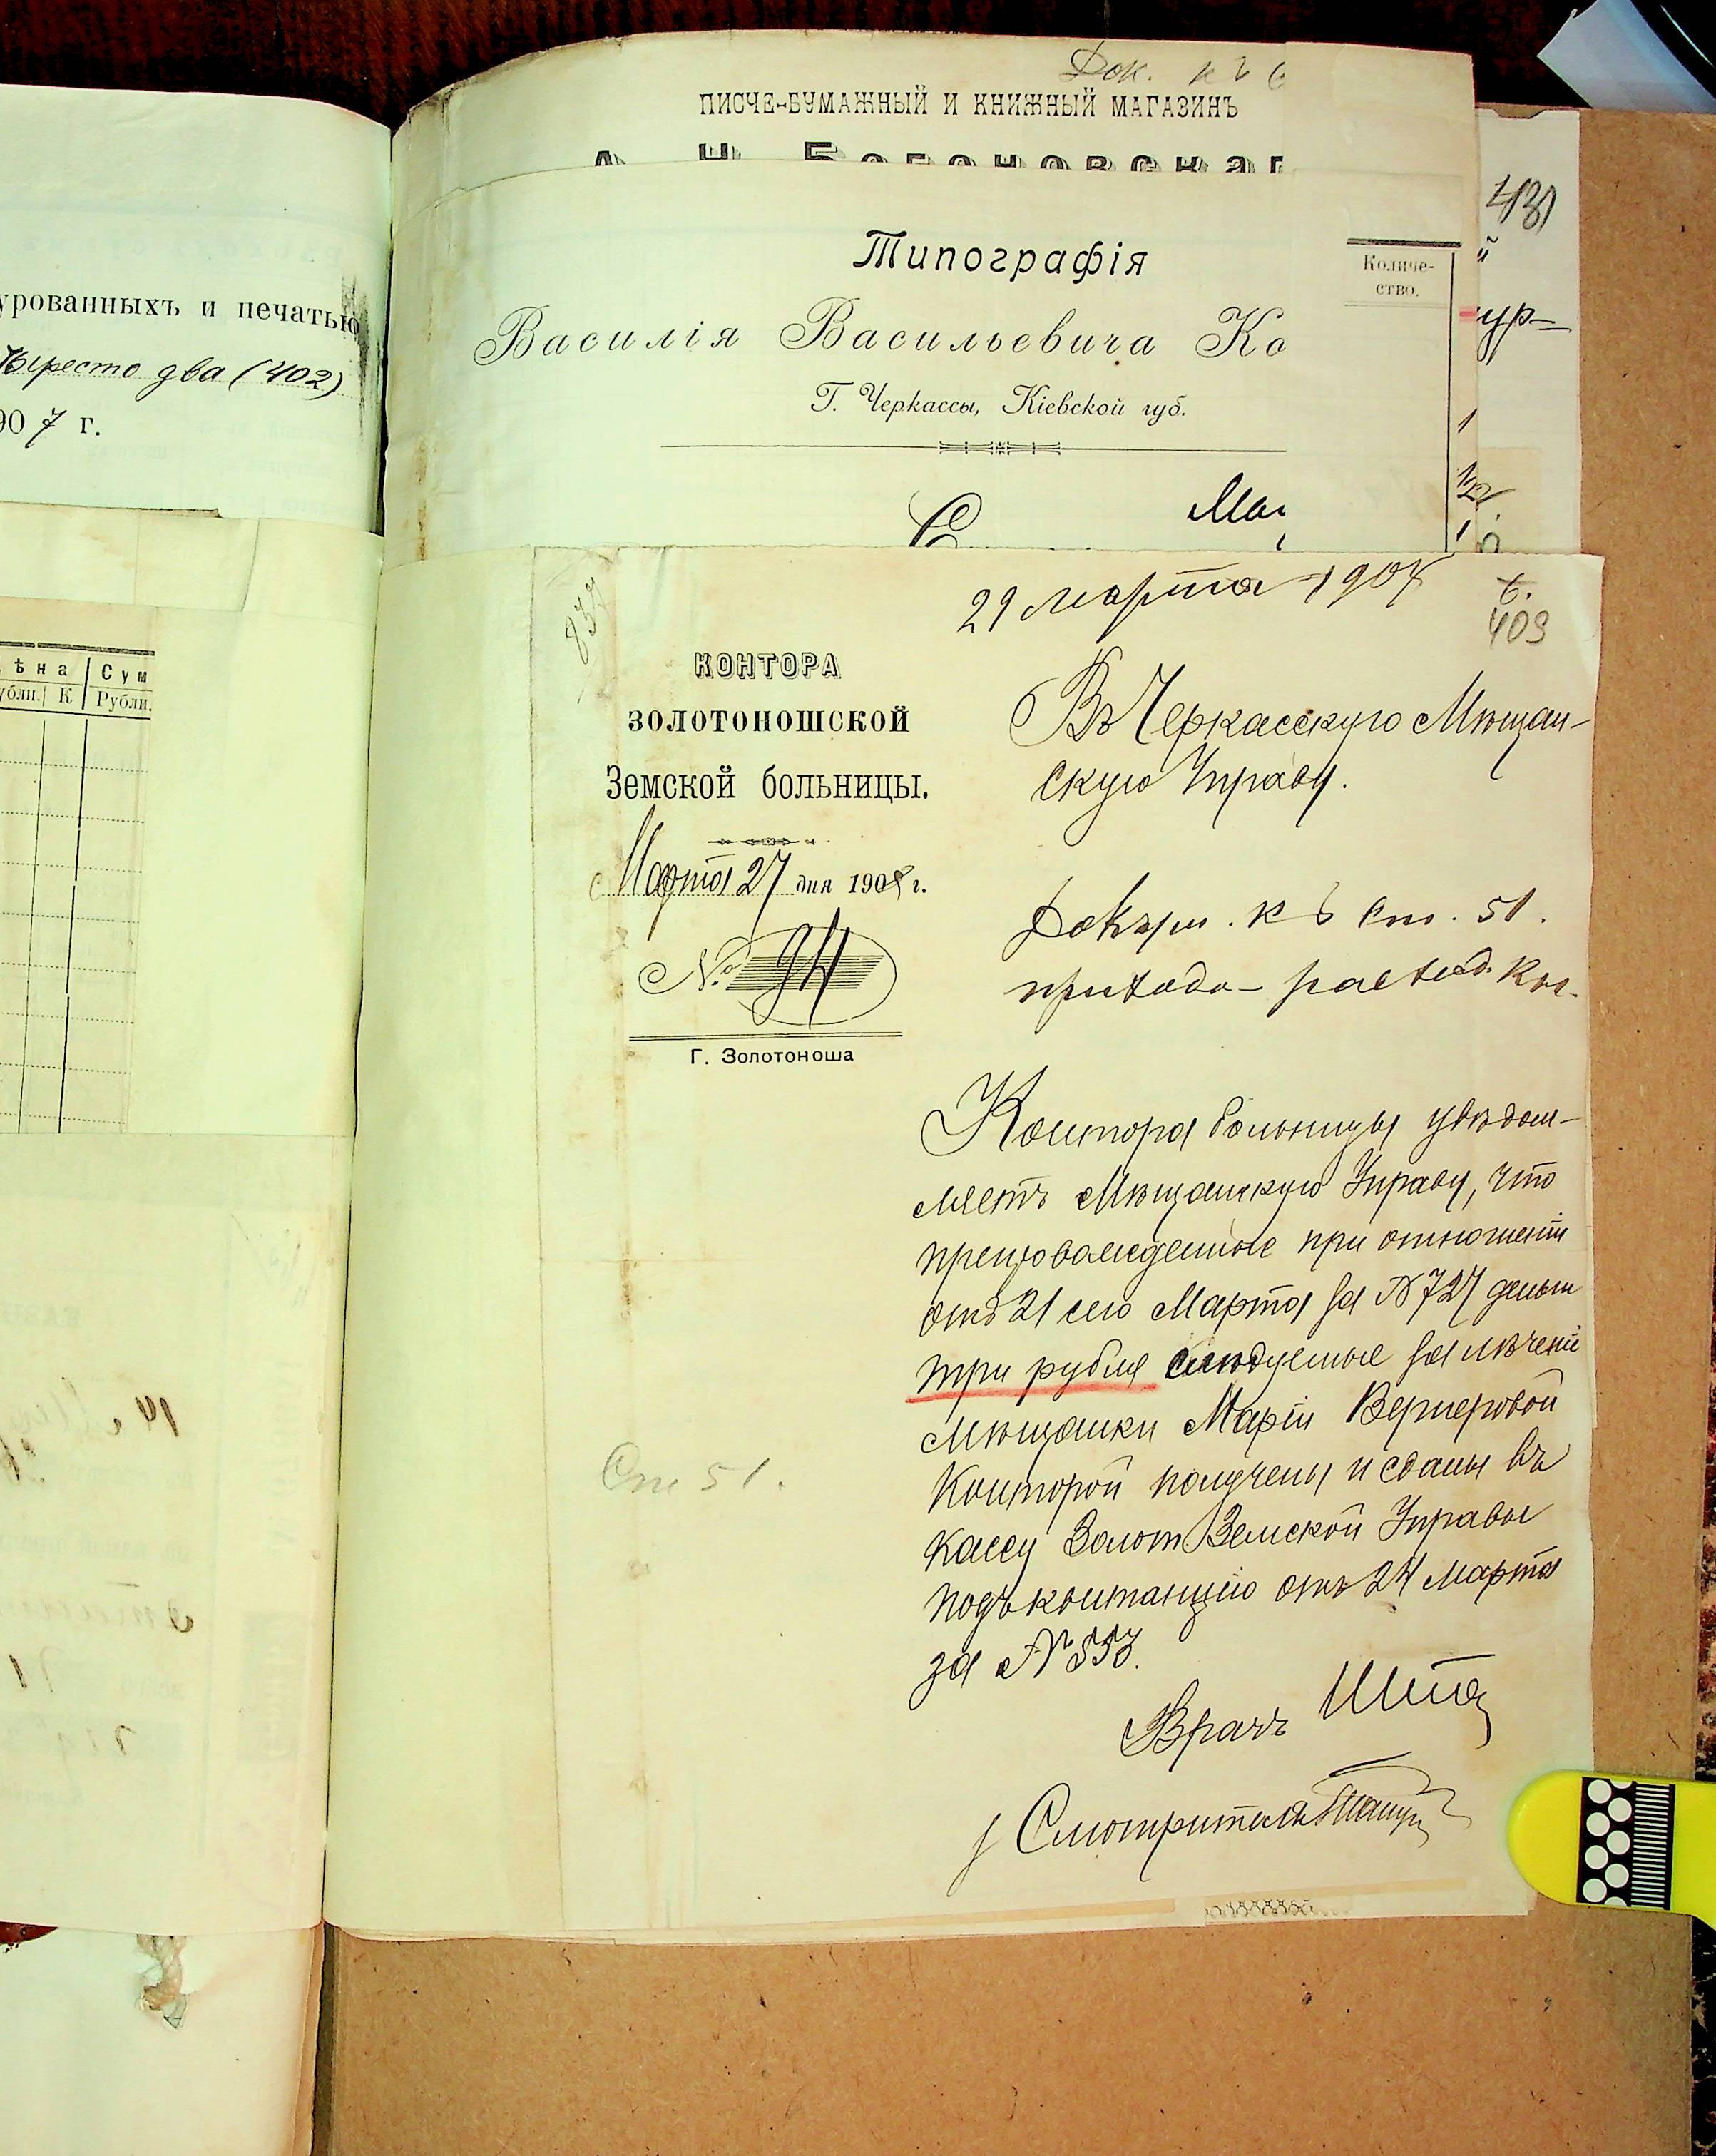 Док. къ
ПИСЧЕ-БУМАЖНЫЙ И КНИЖНЫЙ МАГАЗИНЪ
А. Н. Богоновскаг
431
Типографія
Василія Васильевича Ко
Г. Черкассы, Кіевской губ.
Количе-
ство.
ур-
урованныхъ и печатью
тыреста два (402)
907 г.
ѣна Сум
убли. К Рубли.
29 марта 1907
409
КОНТОРА
ЗОЛОТОНОШСКОЙ
Земской больницы.
Марта 27 дня 1907 г.
№ 94
Г. Золотоноша
Въ Черкасскую Мѣщан-
скую Управу.
Докум. къ ст. 51.
приходо-расход. кн.
Контора больницы увѣдом-
ляетъ Мѣщанскую Управу, что
препровожденные при отношеніи
отъ 21 сего Марта за № 727 деньги
три рубля слѣдуемые за лѣченіе
мѣщанки Маріи Вернеровой
Конторой получены и сданы въ
кассу Золот Земской Управы
подъ квитанцію отъ 24 марта
за № 553.
Ст 51.
Врачъ
Смотритель